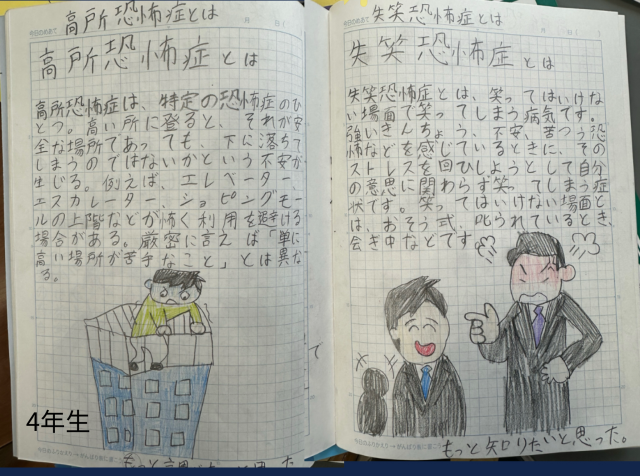 高所恐怖症とは
高所恐怖症とは
高所恐怖症は、特定の恐怖症のひ
とつ。高い所に登ると、それが安
全な場所であっても、下に落ちて
しまうのではないかという不安が
生じる。例えば、エレベーター、
エスカレーター、ショッピングモー
ルの上階などが怖く利用を避ける
場合がある。厳密に言えば「単に
高い場所が苦手なこと」とは異な
る。
4年生
失笑恐怖症とは
失笑恐怖症とは
失笑恐怖症とは、笑ってはいけな
い場面で笑ってしまう病気です。
強いきんちょう、不安、苦つう恐
怖などを感じているときに、その
ストレスを回ひしようとして自分
の意思に関わらず笑ってしまう症
状です。笑ってはいけない場面と
は、おそう式、叱られているとき、
会き中などです。
もっと知りたいと思った。